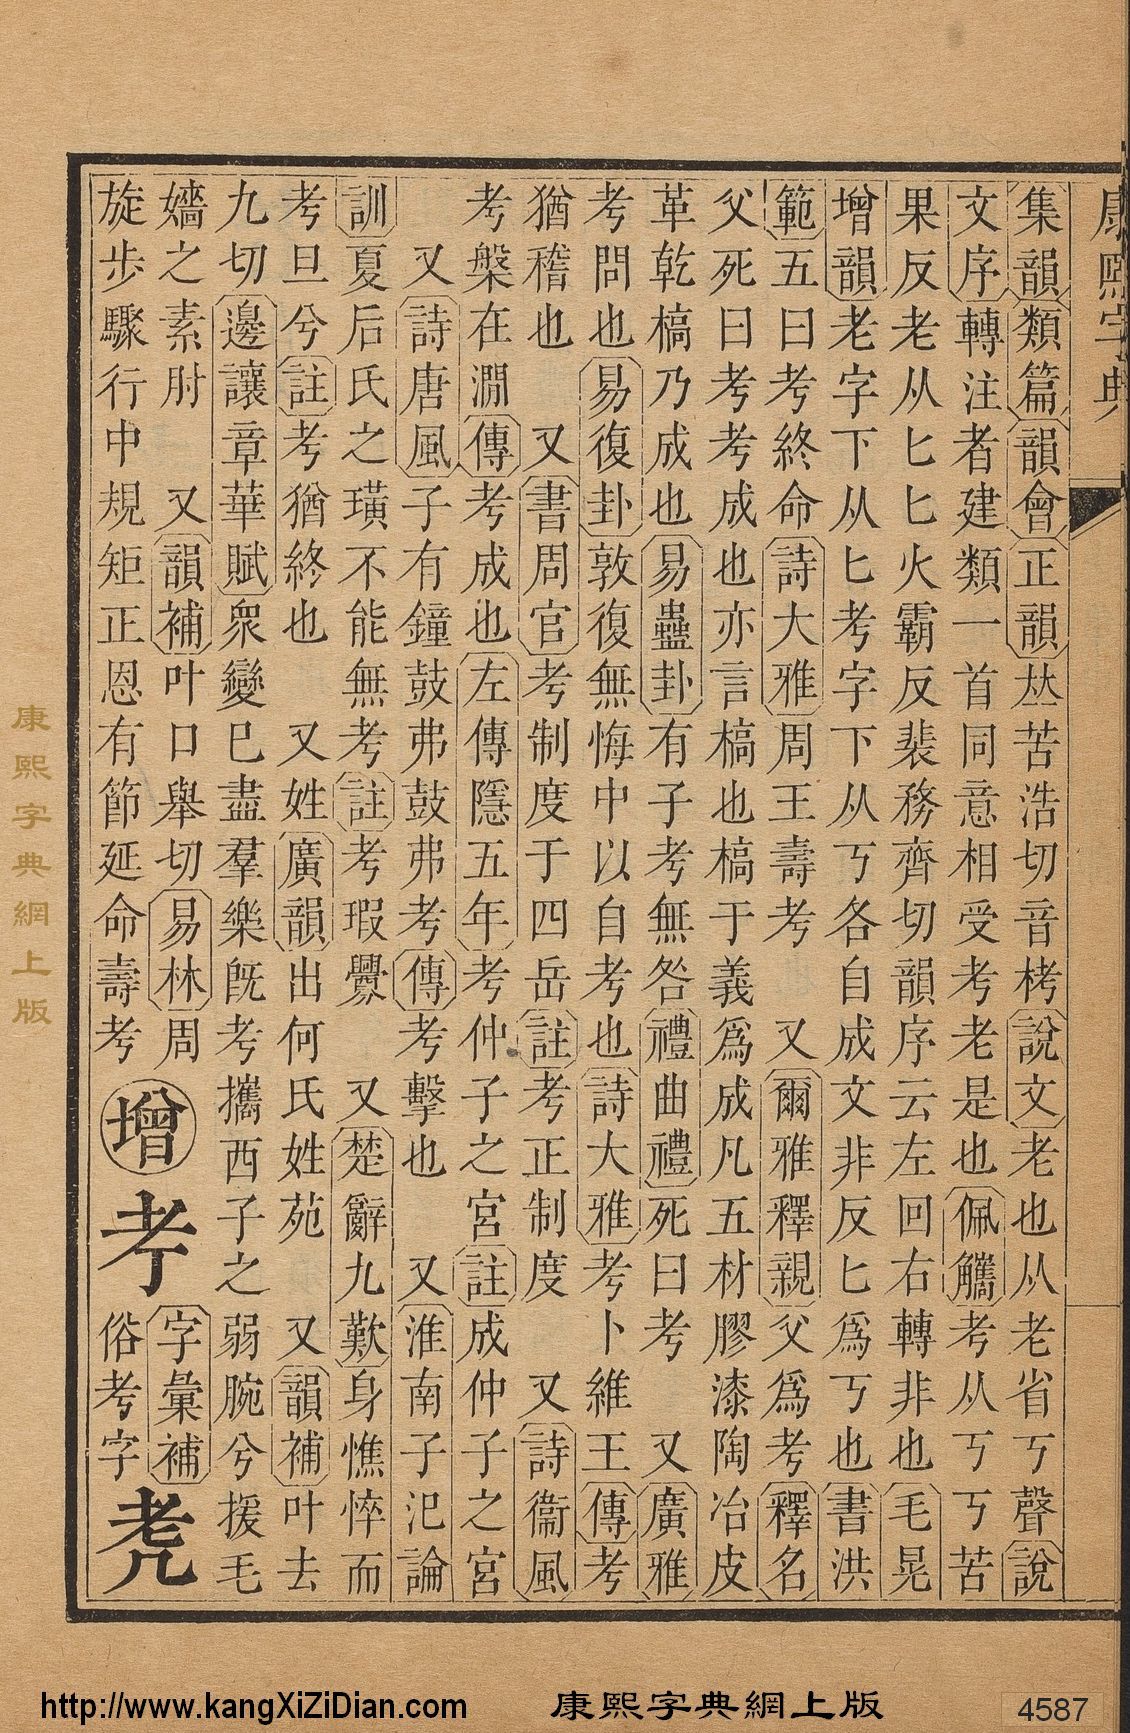 康熙字典
集韻類篇韻會正韻𠀤苦浩切音栲說文老也从老省丂聲說
文序轉注者建類一首同意相受考老是也佩觿考从丂丂苦
果反老从匕匕火霸反裴務齊切韻序云左回右轉非也毛晃
增韻老字下从匕考字下从丂各自成文非反匕爲丂也書洪
範五曰考終命詩大雅周王壽考 又爾雅釋親父爲考釋名
父死曰考考成也亦言槁也槁于義爲成凡五材膠漆陶冶皮
革乾槁乃成也易蠱卦有子考無咎禮曲禮死曰考 又廣雅
考問也易復卦敦復無悔中以自考也詩大雅考卜維王傳考
猶稽也 又書周官考制度于四岳註考正制度 又詩衞風
考槃在澗傳考成也左傳隱五年考仲子之宮註成仲子之宮
又詩唐風子有鐘鼓弗鼓弗考傳考擊也 又淮南子氾論
訓夏后氏之璜不能無考註考瑕釁 又楚辭九歎身憔悴而
考旦兮註考猶終也 又姓廣韻出何氏姓苑 又韻補叶去
九切邊讓章華賦衆變已盡羣樂旣考攜西子之弱腕兮援毛
嬙之素肘 又韻補叶口舉切易林周
旋步驟行中規矩正恩有節延命壽考
增
字彙補
俗考字
康熙字典網上版
http://www.kangXiZiDian.com
康熙字典網上版
4587